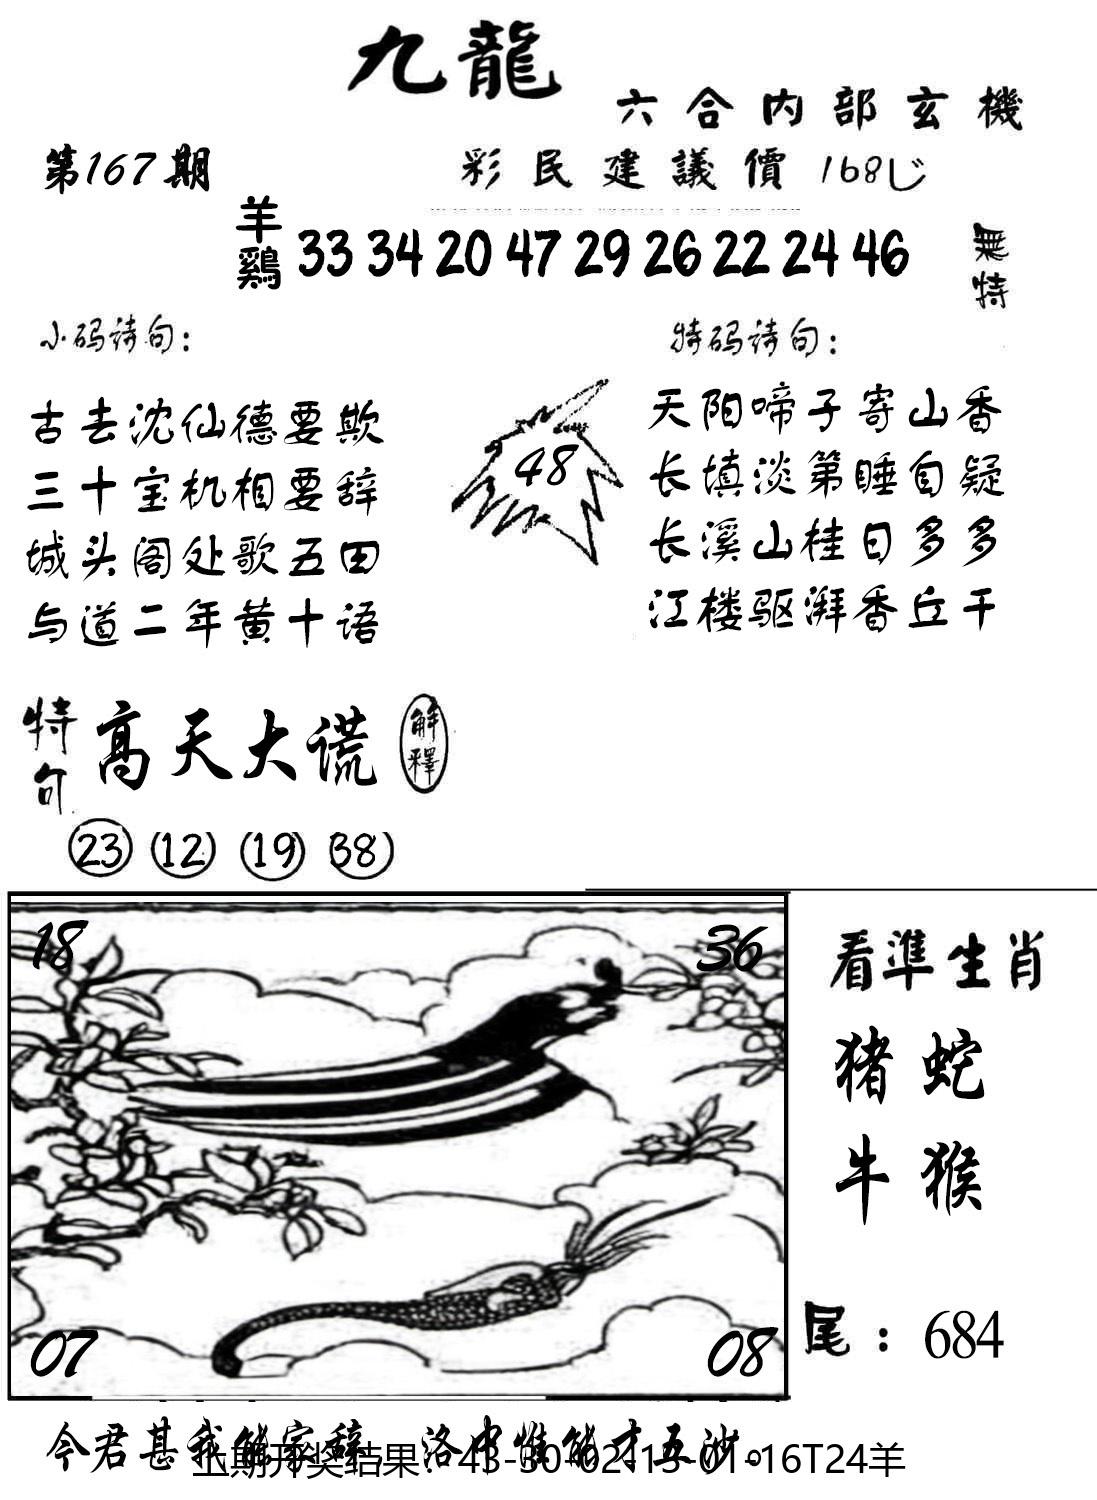 九龍
六合内部玄機
第167期
彩民建議價168
羊鷄 33 34 20 47 29 26 22 24 46
無特
小码诗句：
古去沈仙德要欺
三十宝机相要辞
城头阁处歌五田
与道二年黄十语
48
特码诗句：
天阳啼子寄山香
长填淡第睡自疑
长溪山桂日多多
江楼驱湃香丘干
特句 高天大谎 解釋
23 12 19 38
18 36
07 08
看準生肖
猪 蛇
牛 猴
尾：684
今君甚我能家辞 洛中惟能才五沙。
上期开奖结果：43-30-02-15-01-16T24羊